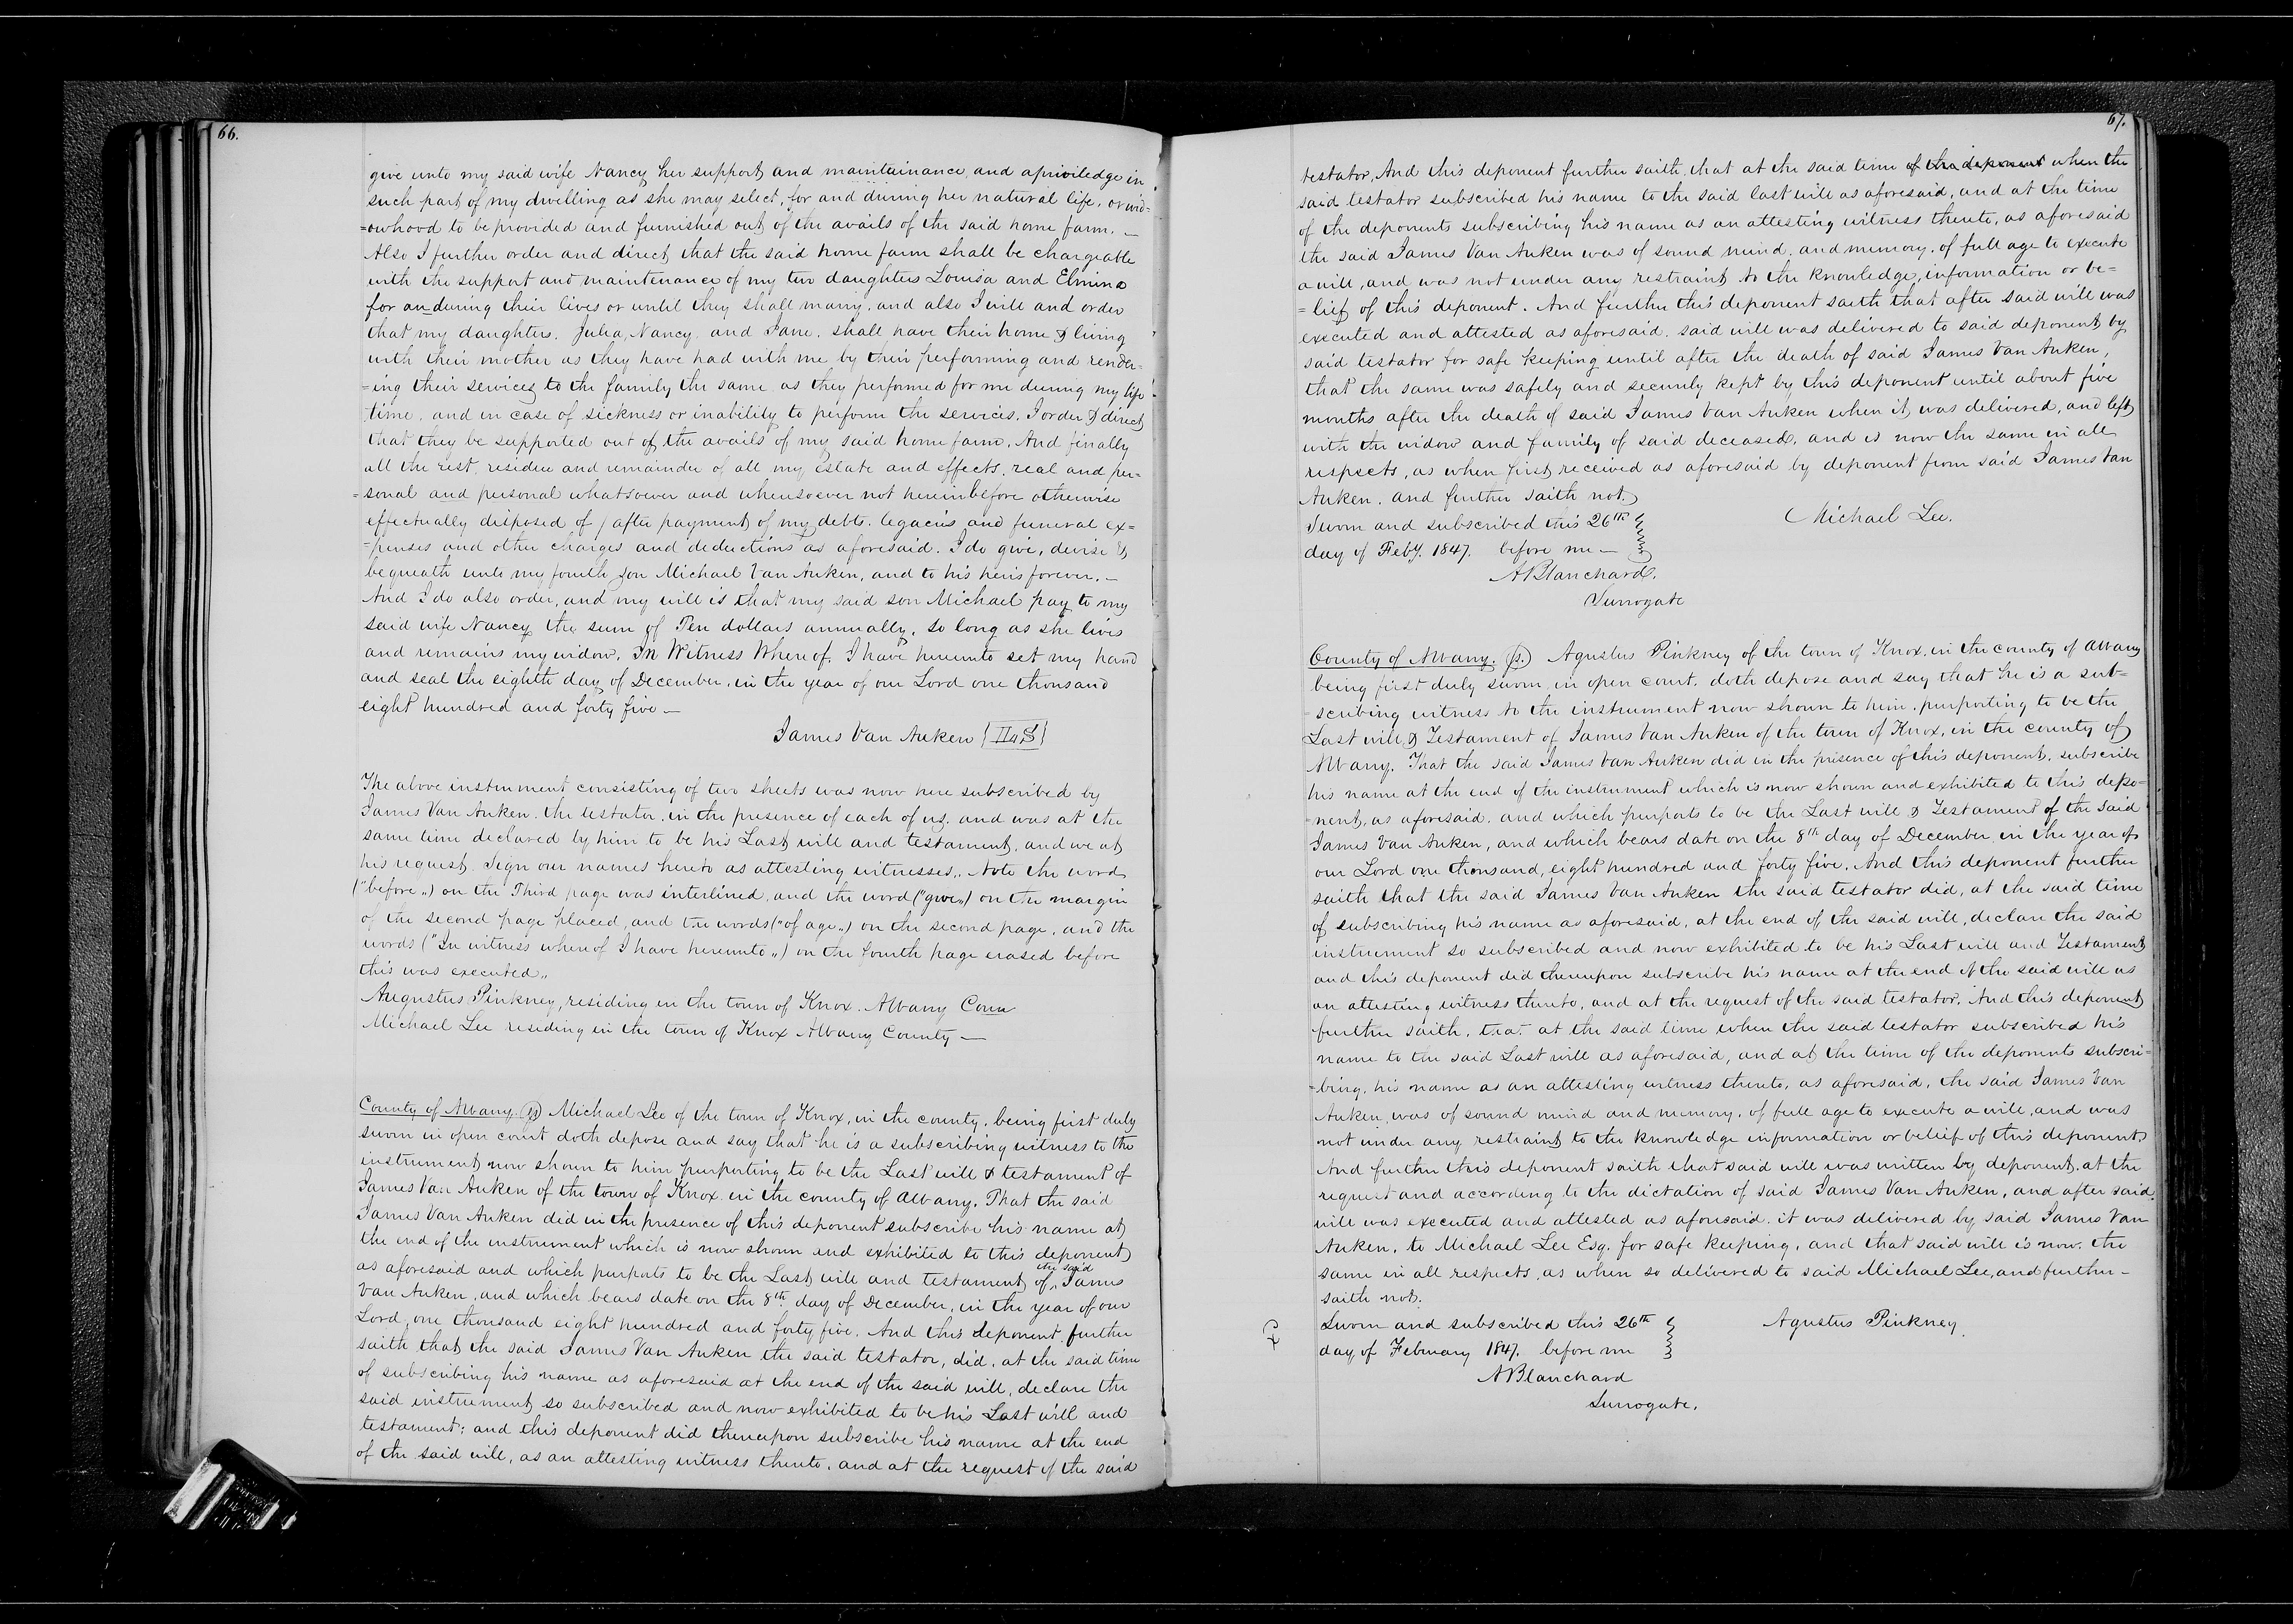 66.
give unto my said wife Nancy her support and maintainance and apriviledge in
such part of my dwelling as she may select, for and during her natural life, or wid=
=owhood to be provided and furnished out of the avails of the said home farm. —
Also I further order and direct that the said home farm shall be chargeable
with the support and maintenance of my two daughters Louisa and Elmina
for an during their lives or until they shall marry, and also I will and order
that my daughters. Julia, Nancy, and Jane. shall have their home & living
with their mother as they have had with me by their performing and render=
=ing their services to the family the same as they performed for me during my life
time, and in case of sickness or inability to perform the services. I order & direct
that they be supported out of the avails of my said home farm. And finally
all the rest, residue and remainder of all my Estate and effects. real and per=
=sonal and personal whatsoever and wheresoever not hereinbefore otherwise
effectually disposed of (after payment of my debts. legacies and funeral ex=
=penses and other charges and deductions as aforesaid. I do give, devise &
bequeath unto my fourth son Michael Van Auken, and to his heirs forever. —
And I do also order, and my will is that my said son Michael pay to my
said wife Nancy the sum of Ten dollars annually, so long as she lives
and remains my widow. In Witness Whereof. I have hereunto set my hand
and seal the eighth day of December, in the year of our Lord one thousand
eight hundred and forty five —
James Van Auken
The above instrument consisting of two sheets was now here subscribed by
James Van Auken. the testator. in the presence of each of us, and was at the
same time declared by him to be his Last will and testament, and we at
his request. Sign our names hereto as attesting witnesses,. Note the word
("before,,) on the Third page was interlined, and the word ("give,,) on the margin
of the second page placed, and the words ("of age,,) on the second page, and the
words ("In witness whereof I have hereunto,,) on the fourth page erased before
this was executed,,
Augustus Pinkney, residing in the town of Knox. Albany Coun
Michael Lee residing in the town of Knox Albany County —
County of Albany. ss Michael Lee of the town of Knox, in the county, being first duly
sworn in open court doth depose and say that he is a subscribing witness to the
instrument now shown to him purporting to be the Last will & testament of
James Van Auken of the town of Knox. in the county of Albany. That the said
James Van Auken did in the presence of this deponent subscribe his name at
the end of the instrument which is now shown and exhibited to this deponent
as aforesaid and which purports to be the Last will and testament of the said James
Van Auken, and which bears date on the 8th day of December, in the year of our
Lord, one thousand eight hundred and forty five. And this deponent further
saith that the said James Van Auken the said testator, did, at the said time
of subscribing his name as aforesaid at the end of the said will, declare the
said instrument so subscribed and now exhibited to be his Last will and
testament; and this deponent did thereupon subscribe his name at the end
of the said will, as an attesting witness thereto. and at the request of the said
67.
testator. And this deponent further saith that at the said time of the deponent when the
said testator subscribed his name to the said last will as aforesaid, and at the time
of the deponents subscribing his name as an attesting witness thereto, as aforesaid
the said James Van Auken was of sound mind, and memory. of full age to execute
a will, and was not under any restraint to the knowledge, information or be=
=lief of this deponent. And further this deponent saith that after said will was
executed and attested as aforesaid. said will was delivered to said deponent by
said testator for safe keeping until after the death of said James Van Auken,
that the same was safely and securely kept by this deponent until about five
months after the death of said James Van Auken when it was delivered, and left
with the widow and family of said deceased, and is now the same in all
respects, as when first received as aforesaid by deponent from said James Van
Auken. and further saith not.
Sworn and subscribed this 26th
day of Feby. 1847. before me —
Michael Lee.
A Blanchard.
Surrogate
County of Albany. ss. Agustus Pinkney of the town of Knox. in the county of Albany
being first duly sworn, in open court. doth depose and say that he is a sub=
scribing witness to the instrument now shown to him. purporting to be the
Last will & Testament of James Van Auken of the town of Knox, in the county of
Albany. That the said James Van Auken did in the presence of this deponent. subscribe
his name at the end of the instrument which is now shown and exhibited to this depo=
=nent, as aforesaid. and which purports to be the Last will & Testament of the said
James Van Auken, and which bears date on the 8th day of December in the year of
our Lord one thousand, eight hundred and forty five. And this deponent further
saith that the said James Van Auken the said testator did, at the said time
of subscribing his name as aforesaid, at the end of the said will, declare the said
instrument so subscribed and now exhibited to be his Last will and Testament
and this deponent did thereupon subscribe his name at the end of the said will as
an attesting witness thereto, and at the request of the said testator. And this deponent
further saith, that at the said time when the said testator subscribed his
name to the said Last will as aforesaid, and at the time of the deponents subscri=
=bing, his name as an attesting witness thereto, as aforesaid, the said James Van
Auken, was of sound mind and memory, of full age to execute a will, and was
not under any restraint to the knowledge information or belief of this deponent.
And further this deponent saith that said will was written by deponent, at the
request and according to the dictation of said James Van Auken, and after said
will was executed and attested as aforesaid. it was delivered by said James Van
Auken, to Michael Lee Esq. for safe keeping, and that said will is now. the
same in all respects, as when so delivered to said Michael Lee, and further —
saith not.
Sworn and subscribed this 26th
day of February 1847. before me
Agustus Pinkney.
A Blanchard
Surrogate.